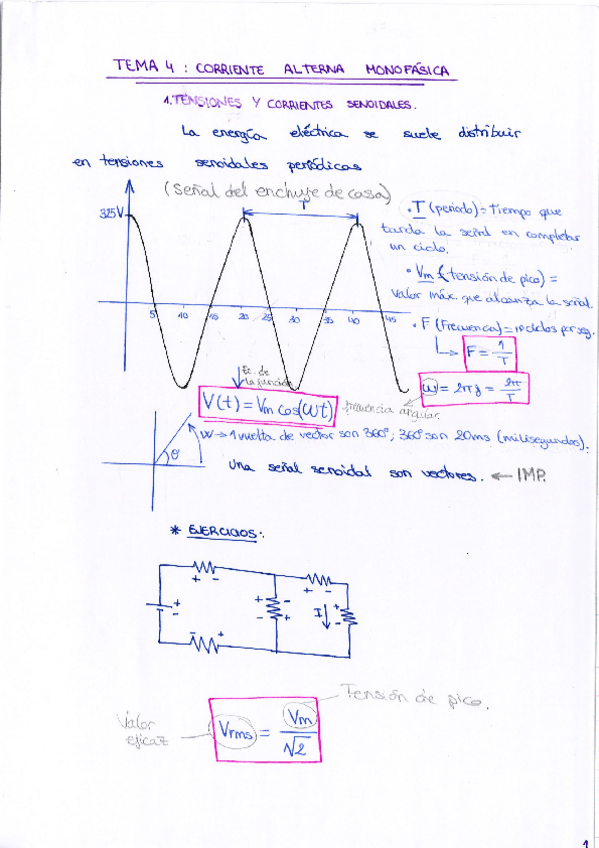 TEMA 4 : CORRIENTE ALTERNA MONOFÁSICA
1. TENSIONES Y CORRIENTES SENOIDALES.
La energía eléctrica se suele distribuir
en tensiones senoidales periódicas
(Señal del enchufe de casa)
325V
T
5 10 20 25 30 35 40 45
• T (periodo) = Tiempo que
tarda la señal en completar
un ciclo.
• Vm = (tensión de pico) =
valor máx. que alcanza la señal.
• F (Frecuencia) = nºciclos por seg.
F = 1/T
ω = 2π = 2π/T
Ec. de
la función
V(t) = Vm cos(ωt)
frecuencia angular
θ
W → 1 vuelta de vector son 360º; 360º son 20ms (milisegundos).
Una señal senoidal son vectores. ← IMP.
* EJERCICIOS:
+ -
+ -
+ -
- +
I
+
-
- +
Tensión de pico.
Valor
eficaz
Vrms = Vm/√2
1